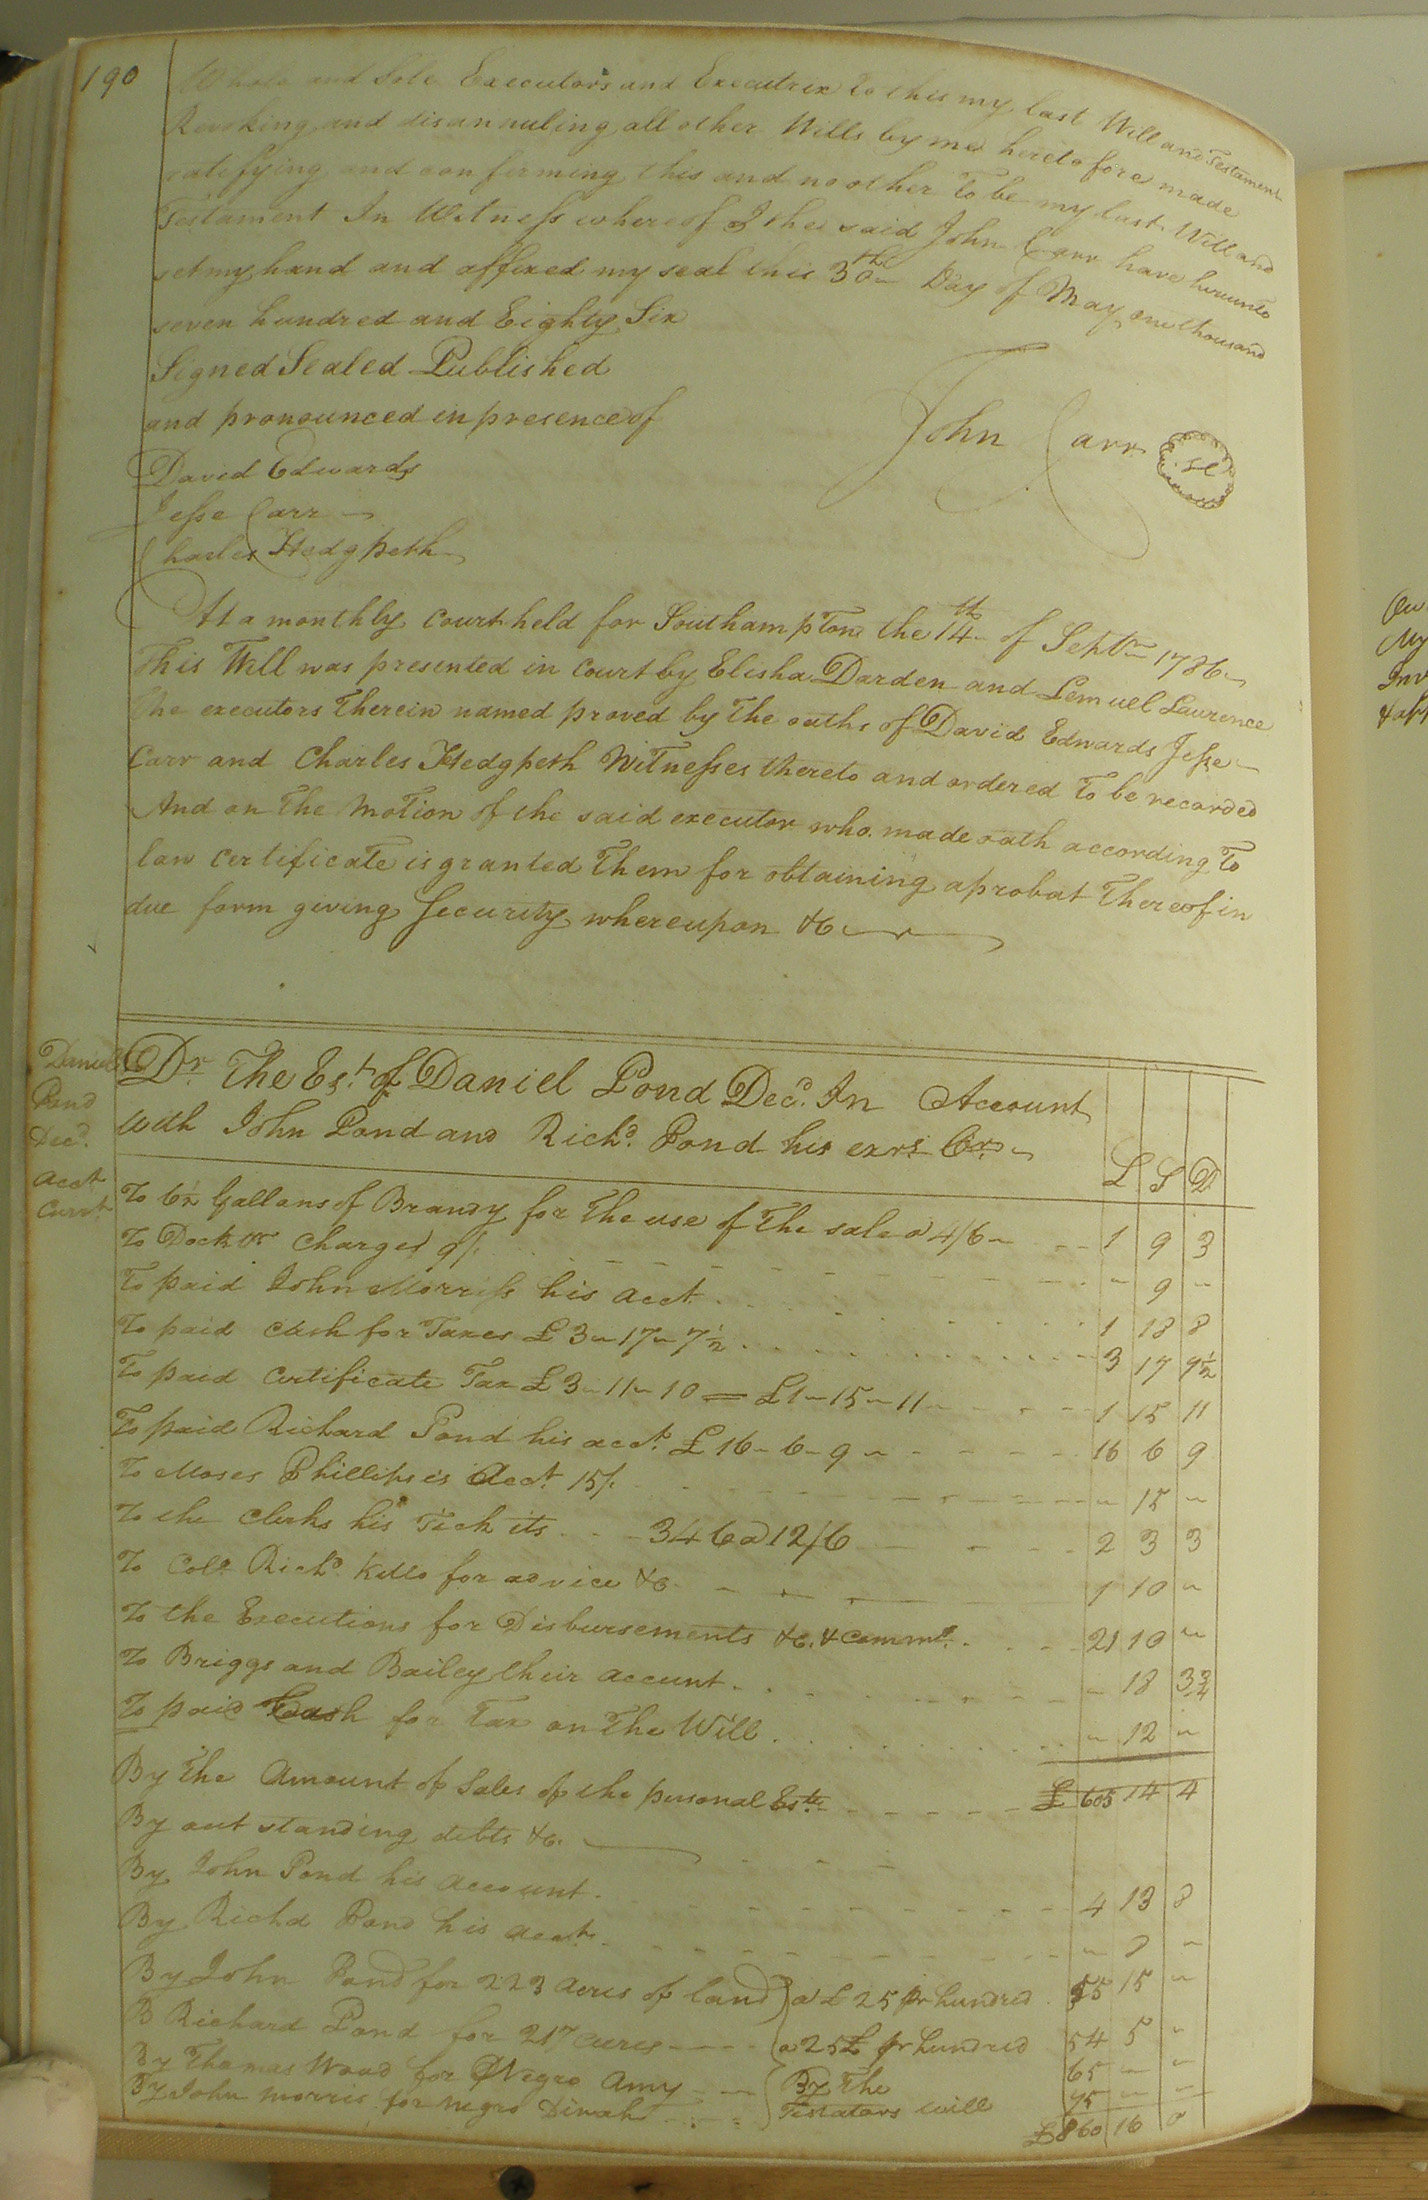 190
Whole and Sole Executors and Executrix to this my last Will and Testament
Revoking and disannuling all other Wills by me heretofore made
ratefying and confirming this and no other To be my last Will and
Testament In Witness whereof I the said John Carr have hereunto
set my hand and affixed my seal this 30th Day of May one thousand
seven hundred and Eighty Six
Signed Sealed Published
and pronounced in presence of
John Carr Sl
David Edwards
Jesse Carr
Charles Hedgpeth
At a monthly court held for Southampton the 14th of Septr 1786
This Will was presented in court by Elisha Darden and Lemuel Laurence
the executors Therein named proved by The oaths of David Edwards Jesse
Carr and Charles Hedgpeth Witnesses thereto and ordered To be recorded
And on The Motion of the said executor who made oath according To
law Certificate is granted Them for obtaining a probat Thereof in
due form giving Security whereupon &c
Daniel
Pond
Decd.
acct
Currt
Dr. The Est. of Daniel Pond Decd. In Account
With John Pond and Richd. Pond his exrs. Cr. £ S D
To 6½ Gallons of Brandy for The use of The sale a 4/6 1 9 3
To Docktor Charges 9/. 9
To paid John Morriss his acct. 1 18 8
To paid Cash for Taxes £3 17 7½ 3 17 7½
To paid Certificate Tax £3 11 10 = £1 15 11 1 15 11
To paid Richard Pond his acct. £16 6 9 16 6 9
To Moses Phillips is Acct. 15/. 15
To the Clerks his Tickits 346 a 12/6 2 3 3
To Colo. Richd. Kello for advice &c. 1 10
To the Executions for Disbursements &c. & Comms. 21 10
To Briggs and Bailey their account. 18 3¾
To paid Cash for Tax on The Will 12
By The Amount of Sales of the personal Este. £ 605 14 4
By out standing debts &c.
By John Pond his account. 4 13 8
By Richd Pond his acct. 8
By John Pond for 223 Acres of land a £25 pr hundred 55 15
B Richard Pond for 217 acres a 25£ pr hundred 54 5
By Thomas Wood for Negro Amy By The 65
By John Morris for Negro Dinah Testators will 75
£860 16 0